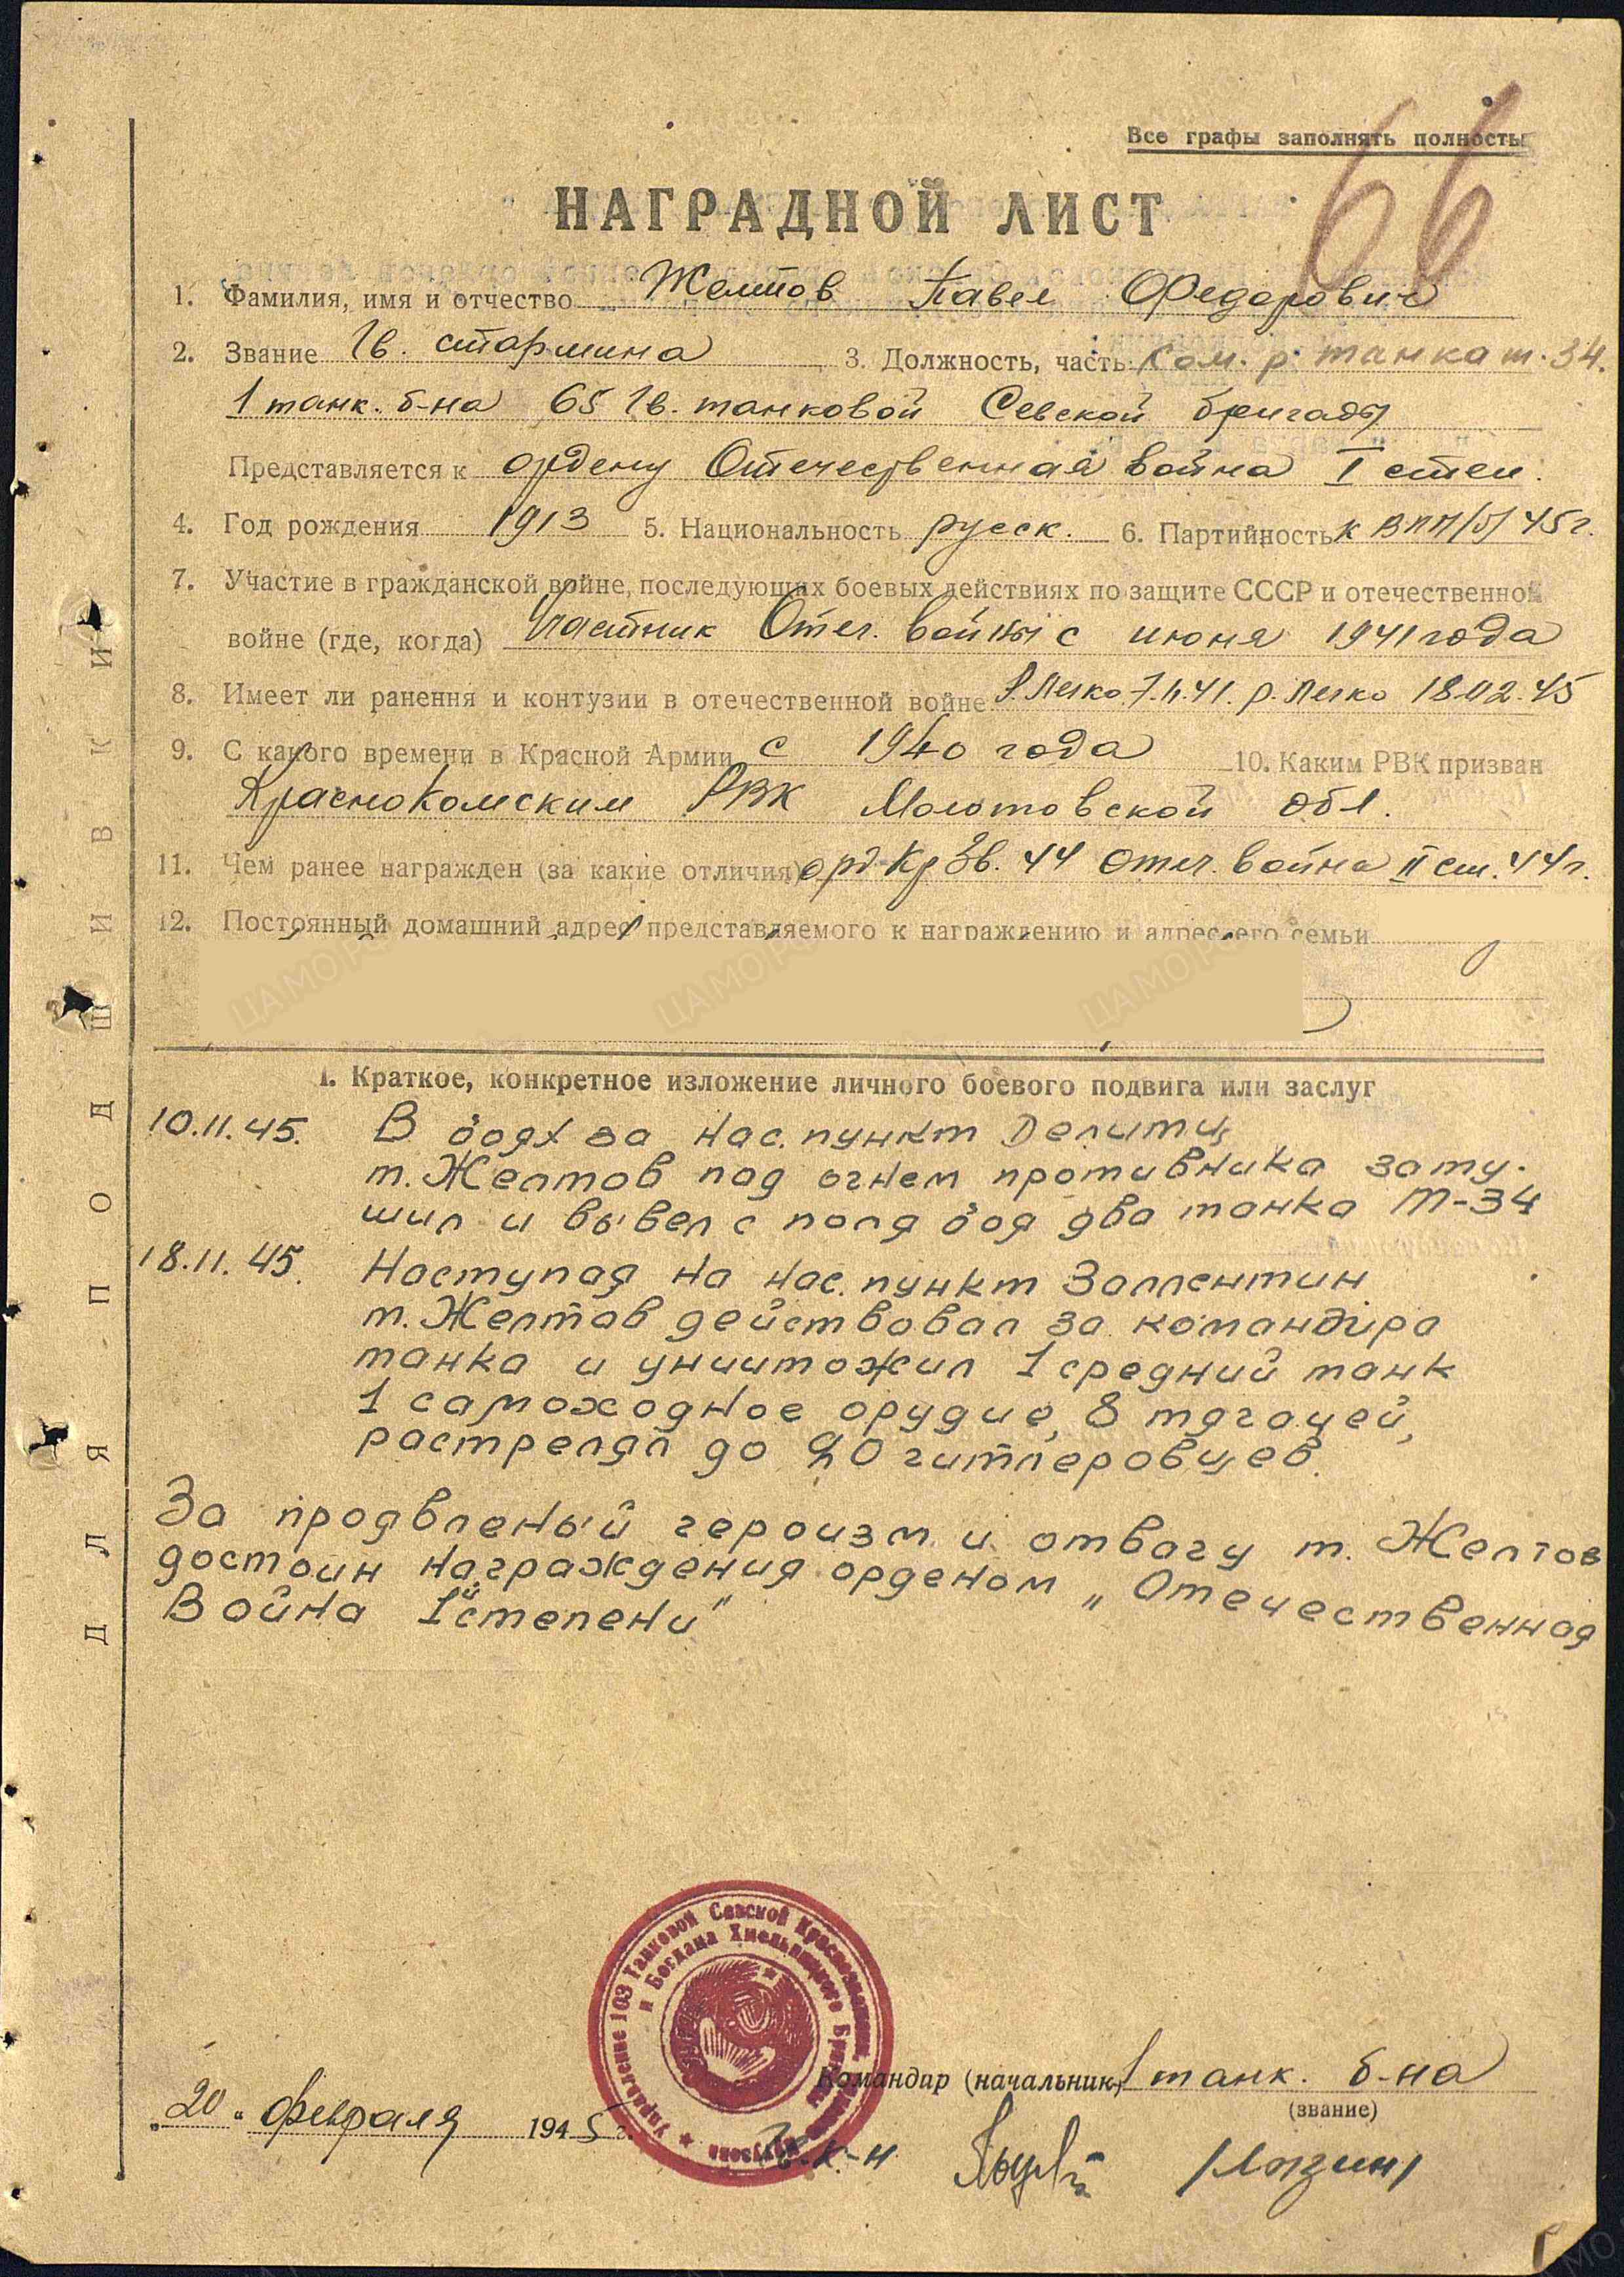 Все графы заполнять полностью
66
НАГРАДНОЙ ЛИСТ
1. Фамилия, имя и отчество Желтов Павел Федорович
2. Звание Гв. старшина 3. Должность, часть Ком. р. танка т-34.
1 танк. б-на 65 Гв. танковой Севской бригады
Представляется к ордену Отечественная война I степ.
4. Год рождения 1913 5. Национальность русск. 6. Партийность К ВПП/б/ 45 г.
7. Участие в гражданской войне, последующих боевых действиях по защите СССР и отечественной
войне (где, когда) Участник Отеч. войны с июня 1941 года
8. Имеет ли ранения и контузии в отечественной войне Р. легко 7.11.41. р. легко 18.02.45
9. С какого времени в Красной Армии с 1940 года 10. Каким РВК призван
Краснокамским РВК Молотовской обл.
11. Чем ранее награжден (за какие отличия) орд. Кр Зв. 44 Отеч. война II ст. 44 г.
12. Постоянный домашний адрес представляемого к награждению и адрес его семьи
I. Краткое, конкретное изложение личного боевого подвига или заслуг
10.11.45. В боях за нас. пункт Делитц
т. Желтов под огнем противника зату-
шил и вывел с поля боя два танка Т-34
18.11.45. Наступая на нас. пункт Заллентин
т. Желтов действовал за командира
танка и уничтожил 1 средний танк
1 самоходное орудие, 8 тягачей,
растрелял до 20 гитлеровцев.
За проявленый героизм и отвагу т. Желтов
достоин награждения орденом „Отечественная
Война 1й степени"
Управление 103 Танковой Севской Краснознаменной
и Богдана Хмельницкого Бригады
Командир (начальник) 1 танк. б-на
(звание)
„20" февраля 1945 г.
Гв. к-н /Лазин/
ДЛЯ ПОДШИВКИ
ЦАМО РФ